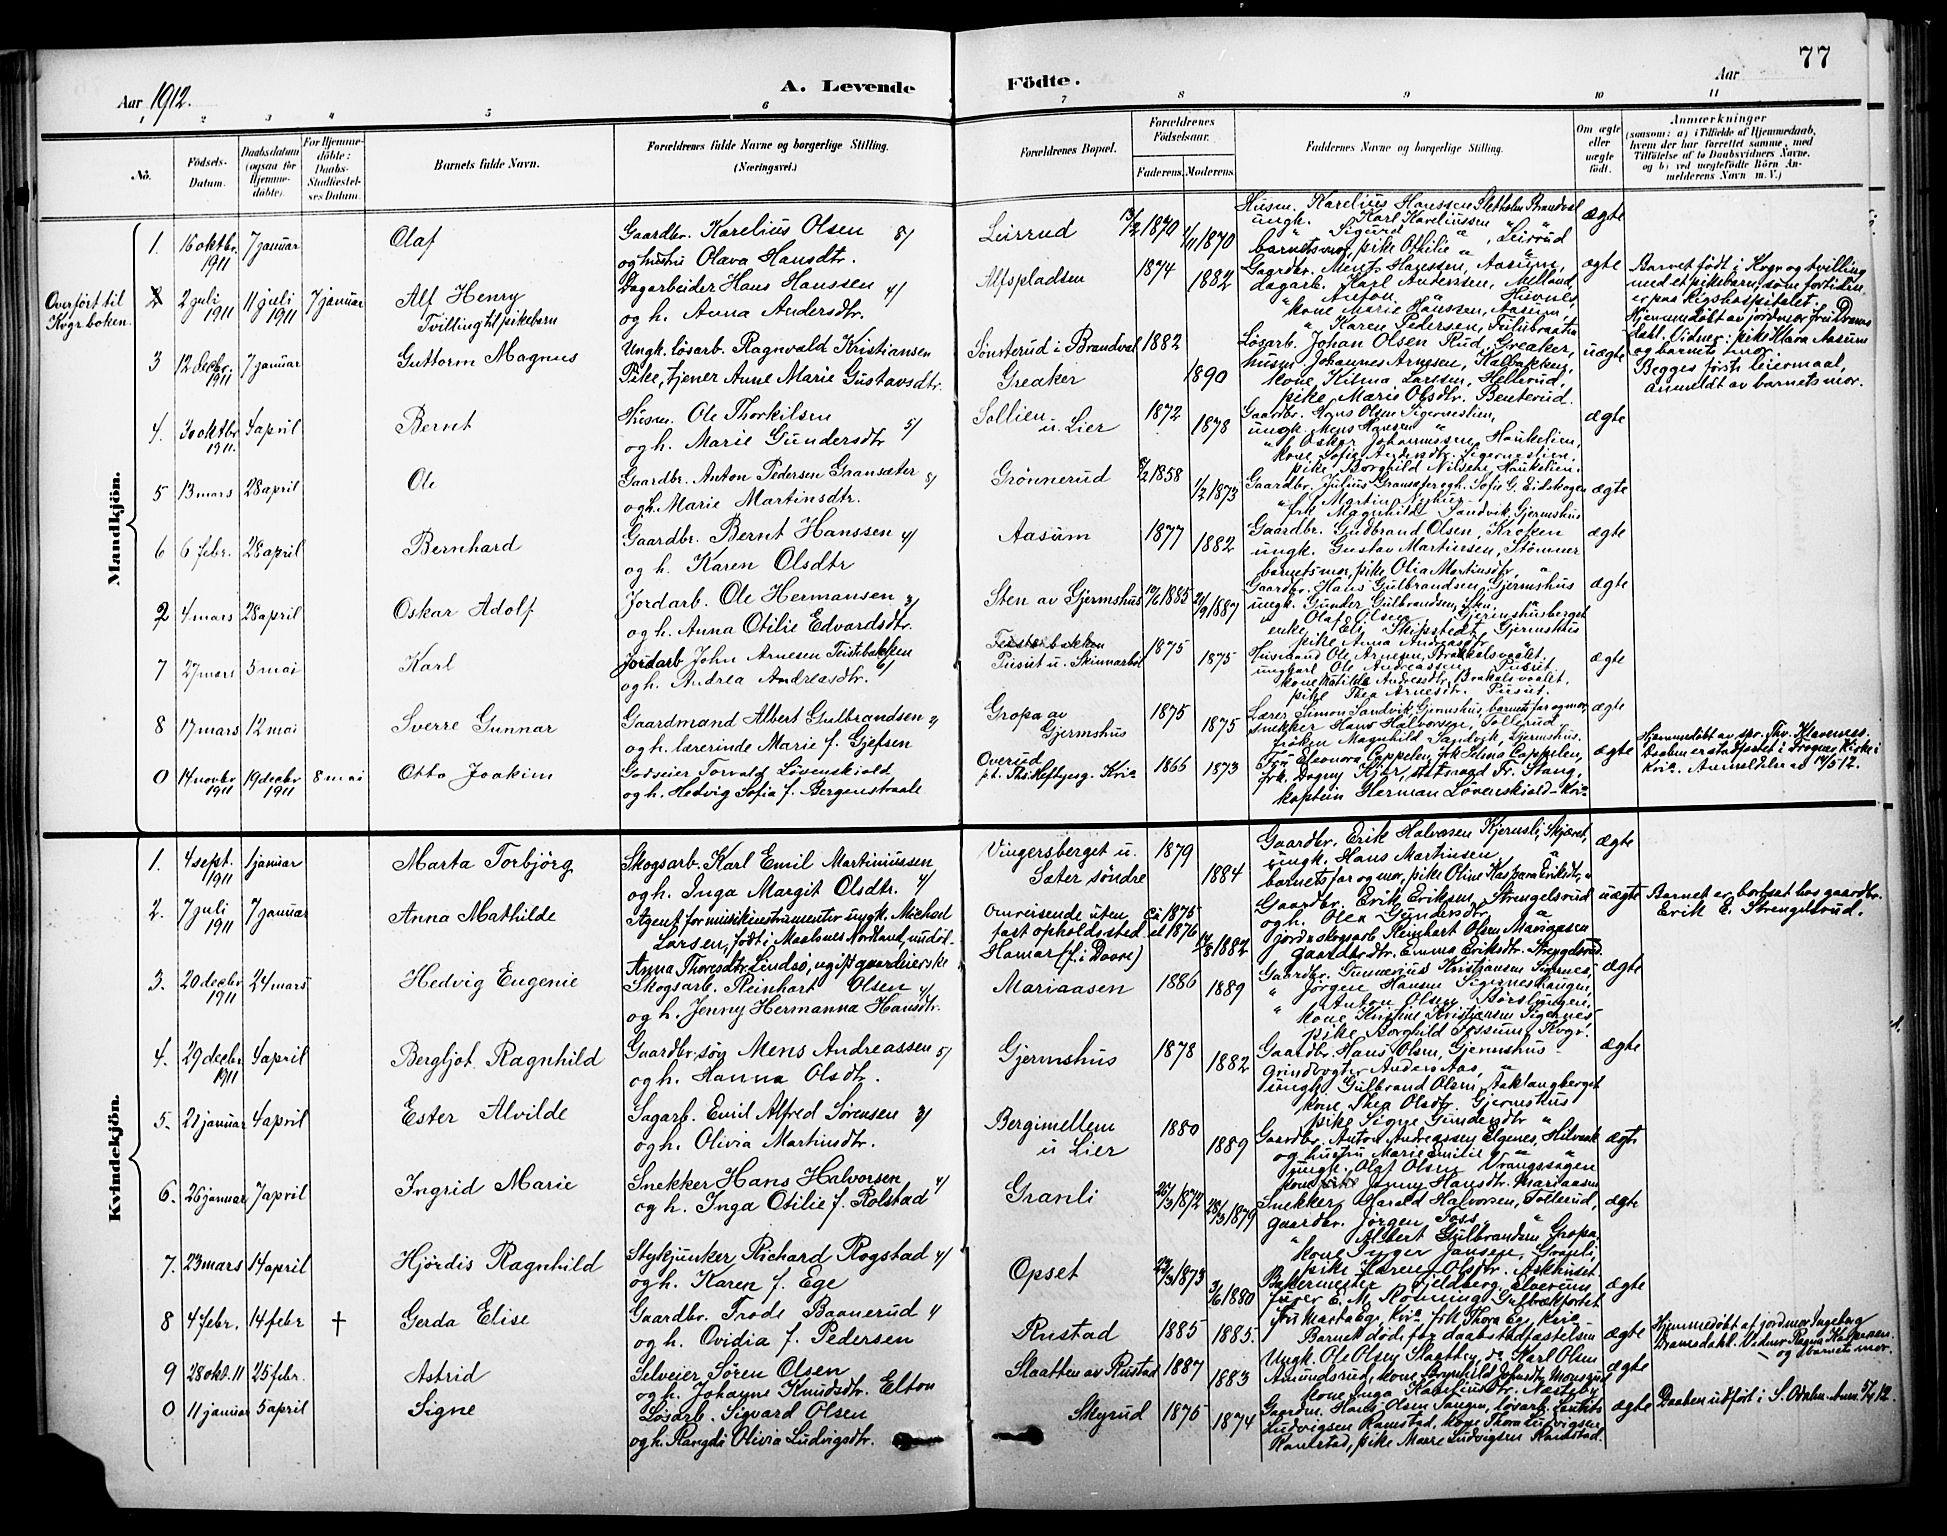 77
Aar 1912.
A. Levende Födte.
Aar
1 2 3 4 5 6 7 8 9 10 11
No.
Födsels-Datum.
Daabsdatum (ogsaa for Hjemmedöbte).
For Hjemmedöbte: Daabs-Stadfæstelses Datum.
Barnets fulde Navn.
Forældrenes fulde Navne og borgerlige Stilling.
(Næringsvei.)
Forældrenes Bopæl.
Forældrenes Födselsaar.
Faderens. Moderens.
Faddernes Navne og borgerlige Stilling.
Om ægte eller uægte födt.
Anmærkninger
(saasom: a) i Tilfælde af Hjemmedaab, hvem der har forrettet samme, med Tilföielse af to Daabsvidners Navne, og b) ved uægtefödte Börn Anmelderens Navn m. V.)
Mandkjön.
1. 16 oktbr. 1911 7 januar Olaf
Gaardbr. Karelius Olsen 8/
og hustru Olava Hansdtr.
Leirrud 13/2 1870 1/11 1870
Husm. Karelius Hanssen Sletholen Brandval
ungk. Karl Kareliussen
" Sigurd " , Leirrud
barnetsmor, pike Othilie "
ægte
Overført til Kvgr. boken.
2 2 juli 1911 11 juli 1911 7 januar Alf Henry
Tvilling til pikebarn
Dagarbeider Hans Hanssen 4/
og h. Anna Andersdtr.
Alfspladsen 1874 1882
dagark. Karl Anderssen, Melland,
kone Marie Hanssen, Aasum,
" Karen Pedersen,
ægte
Barnet født i Kvgr. og tvilling
med et pikebarn, som fortiden
er paa Rigshospitalet.
Hjemmedøbt av jordmor fru
Vidner: pike Klara Aasum
og barnets mor.
3 12 decbr. 1911 7 januar Guttorm Magnus
Ungk. løsarb. Ragnvald Kristiansen
Pike, tjener Anne Marie Gustavsdtr.
Sønsterud i Brandval 1882
Greaker 1890
Løsarb. Johan Olsen Rud, Greaker,
husm. Johannes Arnesen, Kalbakken,
kone, Kilma Larsen, Hellerud,
pike Marie Olsdtr. Benterud.
uægte
Begges første leiermaal,
anmeldt av barnets mor.
4. 30 oktbr. 1911. 4 april Bernt
Husm. Ole Thorkilsen
og h. Marie Gundersdtr 5/
Sollien u. Lier 1872 1878
Gaardbr. Hans Olsen Sigernessien,
ungk. Mens Hansen "
" Oskar Johannessen, Haukelien,
kone Sofie Andersdtr. Sigernessien,
pike Borghild Nilsen, Haukelien.
ægte
5 13 mars 28 april Ole
Gaardbr. Anton Pedersen Gransæter
og h. Marie Martinsdtr.
Grönnerud 1858 1/2 1873
Gaardbr. Julius Gransæter og h. Sofie G. Eidskogen
frk. Magnhild Sandvik, Gjermshus
ægte
6 6 febr. 28 april Bernhard
Gaardbr. Bernt Hanssen 4/
og h. Karen Olsdtr
Aasum 1877 1882
Gaardbr. Gudbrand Olsen, Kroken
ungk. Gustav Martinsen, Stömner
barnetsmor, pike Olia Martinsdtr. "
ægte
2 4 mars 28 april Oskar Adolf
Jordarb. Ole Hermansen 3/
og h. Anna Otilie Edvardsdtr.
Sten av Gjermshus 1885 1887
Gaardbr. Hans Gulbrandsen, Gjermshus
ungk. Gunder Gulbrandsen, Sten.
" Olaf Olsen, Gjermshusberget
enke Eli Skipstedt, Gjermshus
pike Anna Andersdtr "
ægte
7 27 mars 5 mai Karl
Jordarb John Arnesen Teistbakken
og h. Andrea Andreasdtr. 6/
Teistebakken
Puset u. Skinnarbøl 1875 1875
Husmand Ole Arnesen, Brakalsvaalet,
ungkarl Ole Andreassen, Puset.
kone Matilde Andreasdtr. Brakalsvaalet.
pike Thea Arnesdtr. Puset.
ægte
8 17 mars 12 mai Sverre Gunnar
Gaardmand Albert Gulbrandsen 4/
og h. lærerinde Marie f. Gjefsen
Gropa av Gjermshus 1875 1875
Lærer Simon Sandvik, Gjermshus, barnets far og mor,
Snekker Hans Halvorsen, Tollerud
frøken Magnhild Sandvik, Gjermshus.
ægte
0 14 novbr 1911 19 decbr 1911 8 mai Otto Joakim
Godseier Torvald Løvenskiold
og h. Hedvig Sofia f. Bergenstraale
Overud
1866 1873
Fru Eleonora Cappelen, frk Selma Cappelen,
frk. Dagny Kjær, statsraad Fr. Stang,
kaptein Herman Løvenskiold - Kria
ægte
Hjemmedøbt av spr. Thv. Klaveness.
Daaben er stadfæstet i Frogner Kirke i
Kria. Anmeldelse ad 14/5 12.
Kvindekjön.
1. 4 sept. 1911 1 januar Marta Torbjörg
Skogsarb. Karl Emil Martiniussen
og h. Inga Margit Olsdtr. 4/
Vingersberget u. Sæter søndre 1879 1884
Gaardbr. Erik Halvorsen Kjernsli, Skjæret,
ungk. Hans Martinsen,
barnets far og mor, pike Oline Kaspara Eriksdtr, "
ægte
2. 7 juli 1911 7 januar Anna Mathilde
Agent for musikinstrumenter ungk. Michael
Larsen, født i Maalsnes Nordland, und
Anna Thoresdtr. Lindsö, ugift gaardeierske
Omreisende uten
fast opholdssted
Hamar (f. i Dovre)
Ca 1875 el 1876 14/8 1882
Gaardbr. Erik Eriksen, Strengelsrud
og h. Olea Gundersdtr. "
jord & skogsarb. Reinhart Olsen Mariaasen
gaardbrdtr. Emma Eriksdtr. Strengelsrud.
uægte
Barnet er bortsat hos gaardbr.
Erik E. Strengelsrud.
3. 20 decbr 1911 24 mars Hedvig Eugenie
Skogsarb. Reinhart Olsen 4/
og h. Jenny Hermanna Hansdtr.
Mariaasen 1886 1889
Gaardbr. Gunnerius Kristjansen Sigernes,
" Jörgen Hansen Sigerneshaugen,
" Anton Olsen, Børslyngen,
kone Kristine Kristjansen Sigernes
pike Borghild Fossum, Kvgr.
ægte
4. 29 decbr. 1911 4 april Bergljot Ragnhild
Gaardbr. søn Mens Andreassen 5/
og h. Hanna Olsdtr.
Gjermshus 1878 1882
Gaardbr. Hans Olsen, Gjermshus
Grindvogter Anders Aas, "
ungk. Gulbrand Olsen, Aaklangberget
kone Thea Olsdtr. Gjermshus
pike Signe Gundersdtr "
ægte
5. 28 januar 4 april Ester Alvilde
Sagarb. Emil Alfred Sørensen 3/
og h. Olivia Martinsdtr.
Bergimellem u Lier 1880 1889
Gaardbr. Anton Andreassen Elgenes,
og hustru Marie Emilie " "
ungk. Olaf Olsen Vrangssagen
kone Jenny Hansdtr. Mariaasen
ægt.
6. 26 januar 7 april Ingrid Marie
Snekker Hans Halvorsen 4/
og h. Inga Otilie f. Rolstad
Granli 25/3 1872 28/3 1879
Snekker Harald Halvorsen, Tollerud,
gaardbr. Jörgen Foss, "
" Albert Gulbrandsen, Gropa,
kone Inger Jansen, Granli,
pike Karen Olsdtr.
ægte
7. 23 mars 14 april Hjördis Ragnhild
Stykjunker Richard Rogstad 4/
og h. Karen f. Ege
Opset 1873 3/6 1880
Bakermester Fjeldberg, Elverum,
furer E. M. Rönning, Gulbækfortet
fru Marta Ege, Kria, frk Thora Ege, Kria
ægte
8 4 febr. 14 febr † Gerda Elise
Gaardbr. Frode Baanerud 4/
og h. Ovidia f. Pedersen
Rustad 1885 1885.
Barnet døde før daabsstadfæstelsen
ægte
Hjemmedøbt af jordmor Ingeborg
Dramsdahl. Vidner: Ragna
og barnets mor.
9 28 okt. 11 25 febr. Astrid
Selveier Søren Olsen
og h. Johanne Knudsdtr. Elton
Slaatten av Rustad 1887 1883
Ungk. Ole Olsen Slaatten, do Karl Olsen
ægte
0 11 januar 5 april Signe
Løsarb. Sigvard Olsen
og h. Rangdi Olivia Ludvigsdtr.
Skyrud 1875 1874
Ludvigsen Ramstad, kone Thora Ludvigsen
Ramstad, pike Marie Ludvigsen Ramstad.
ægte
Daaben utført i S. Odalen. Anm. 5/4 12.